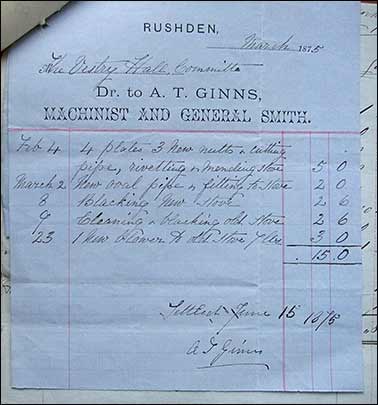 RUSHDEN,
March 1875
The Vestry Hall, Committe
Dr. to A. T. GINNS,
MACHINIST AND GENERAL SMITH.
Feb 4 4 plates 3 New nutts & cutting
pipe, rivetting & mending stove 5 0
March 2 New oval pipe & fitting to stove 2 0
8 Blacking New Stove 2 6
9 Cleaning & blacking old stove 2 6
23 1 New blower to old stove 3 0
15 . 0
Settled June 15 1875
A T Ginns